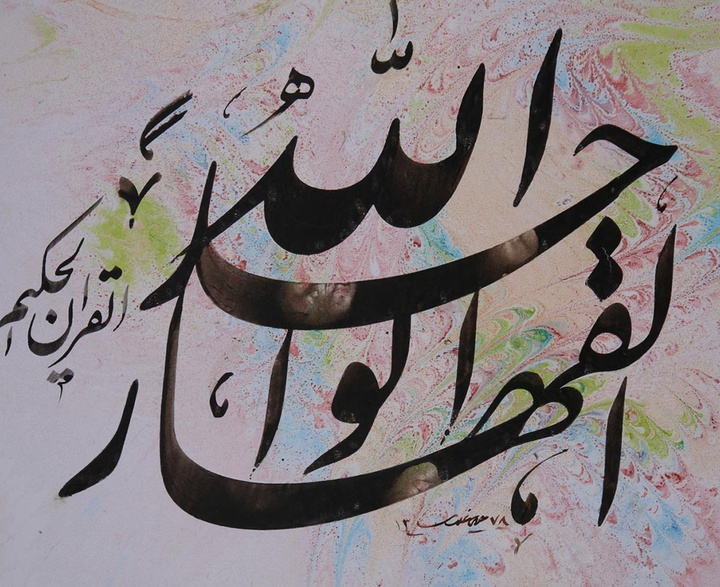 الله الواحد القهار
القران الحکیم